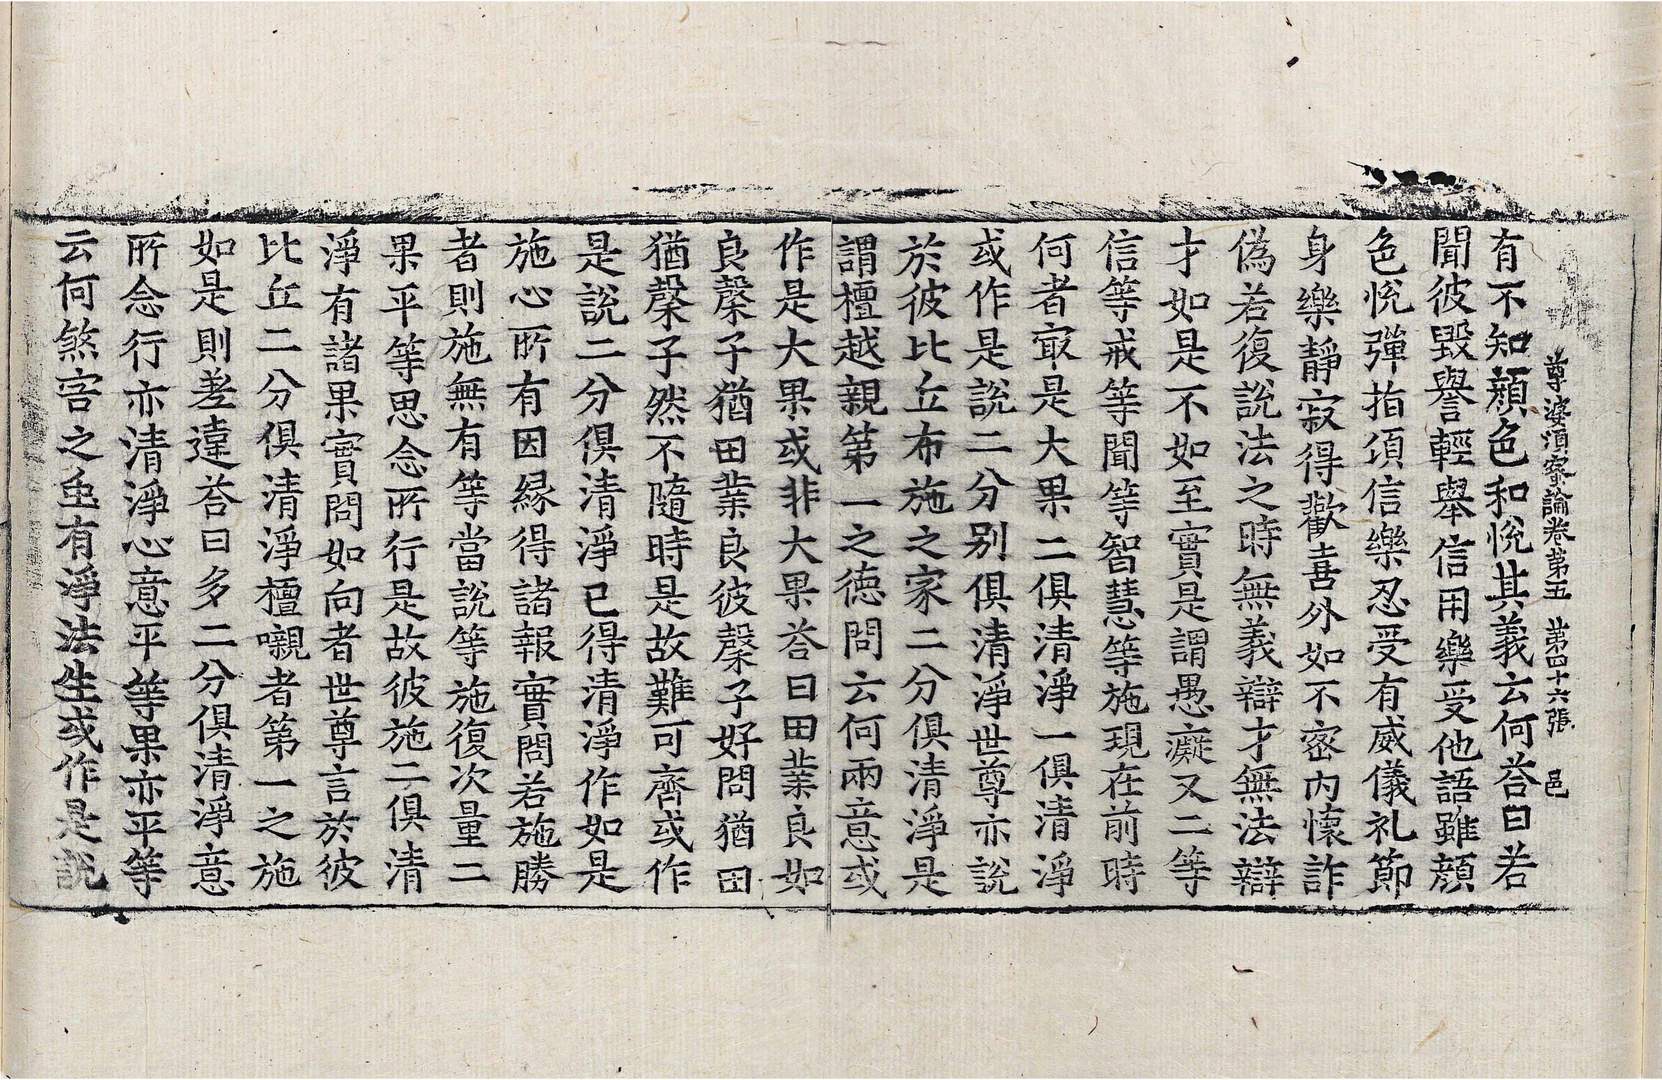 尊婆須蜜論卷第五　第四十六張　邑
有不知顏色和悅其義云何荅曰若
聞彼毀譽輕舉信用樂受他語雖顏
色悅彈指須信樂忍受有威儀礼節
身樂靜寂得歡喜外如不密內懷詐
偽若復說法之時無義辯才無法辯
才如是不如至實是謂愚癡又二等
信等戒等聞等智慧等施現在前時
何者㝡是大果二俱清淨一俱清淨
或作是說二分别俱清淨世尊亦說
於彼比丘布施之家二分俱清淨是
謂檀越親第一之德問云何兩意或
作是大果或非大果荅曰田業良如
良䅽子猶田業良彼䅽子好問猶田
猶䅽子然不隨時是故難可齊或作
是說二分俱清淨已得清淨作如是
施心所有因緣得諸報實問若施勝
者則施無有等當說等施復次量二
果平等思念所行是故彼施二俱清
淨有諸果實問如向者世尊言於彼
比丘二分俱清淨檀嚫者第一之施
如是則差違荅曰多二分俱清淨意
所念行亦清淨心意平等果亦平等
云何煞害之垂有淨法生或作是說